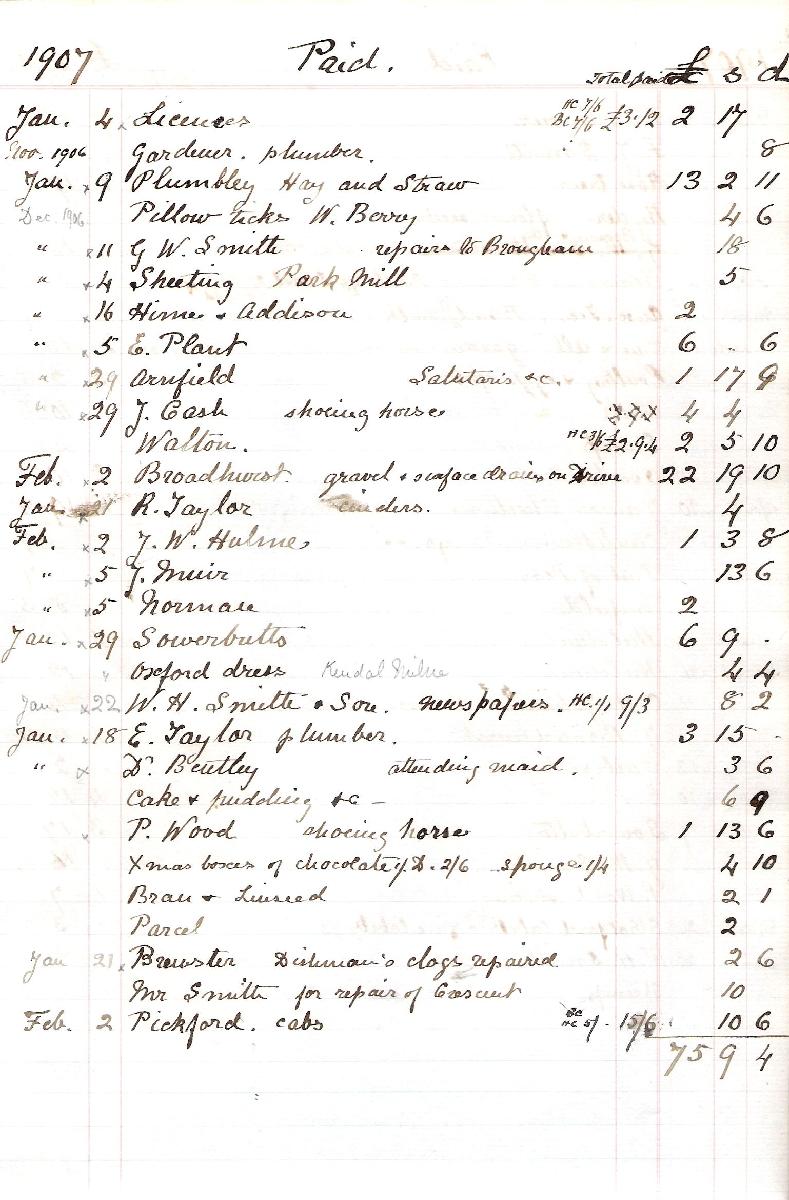 1907 Paid. Total paid £ s d
Jan. 4 x Licences HC 7/6 BC 7/6 £3.12 2 17
Nov. 1906 Gardener. plumber. 8
Jan. x 9 Plumbley Hay and Straw 13 2 11
Dec. 1906 Pillow ticks W. Berry 4 6
" x 11 G W. Smith repairs to Brougham 18
" x 4 Sheeting Park Mill 5
" x 16 Hime & Addison 2
" x 5 E. Plant 6 . 6
" x 29 Arnfield Salutaris &c. 1 17 9
" x 29 J. Cash shoeing horse 4 4
Walton. HC 3/6 £2.9.4 2 5 10
Feb. x 2 Broadhurst. gravel & surface drains on Drive 22 19 10
Jan x 21 R. Taylor cinders. 4
Feb. x 2 J. W. Hulme 1 3 8
" x 5 J. Muir 13 6
" x 5 Norman 2
Jan. x 29 Sowerbutts 6 9 .
" Oxford dress Kendal Milne 4 4
Jan. x 22 W. H. Smith & Son. newspapers. HC. 1/1 9/3 8 2
Jan. x 18 E. Taylor plumber. 3 15 .
" x Dr. Bentley attending maid. 3 6
Cake & pudding &c — 6 9
x P. Wood shoeing horse 1 13 6
Xmas boxes of chocolate D. 2/6 sponge 1/4 4 10
Bran & Linseed 2 1
Parcel 2
Jan 21 x Brewster Dishman's clogs repaired 2 6
Mr Smith for repair of Crescent 10
Feb. 2 Pickford. cabs BC HC 5/- 15/6 10 6
75 9 4